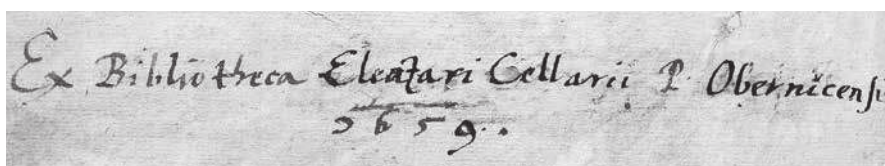 Ex Bibliotheca Eleazari Cellarii P. Obernicensi
1659.